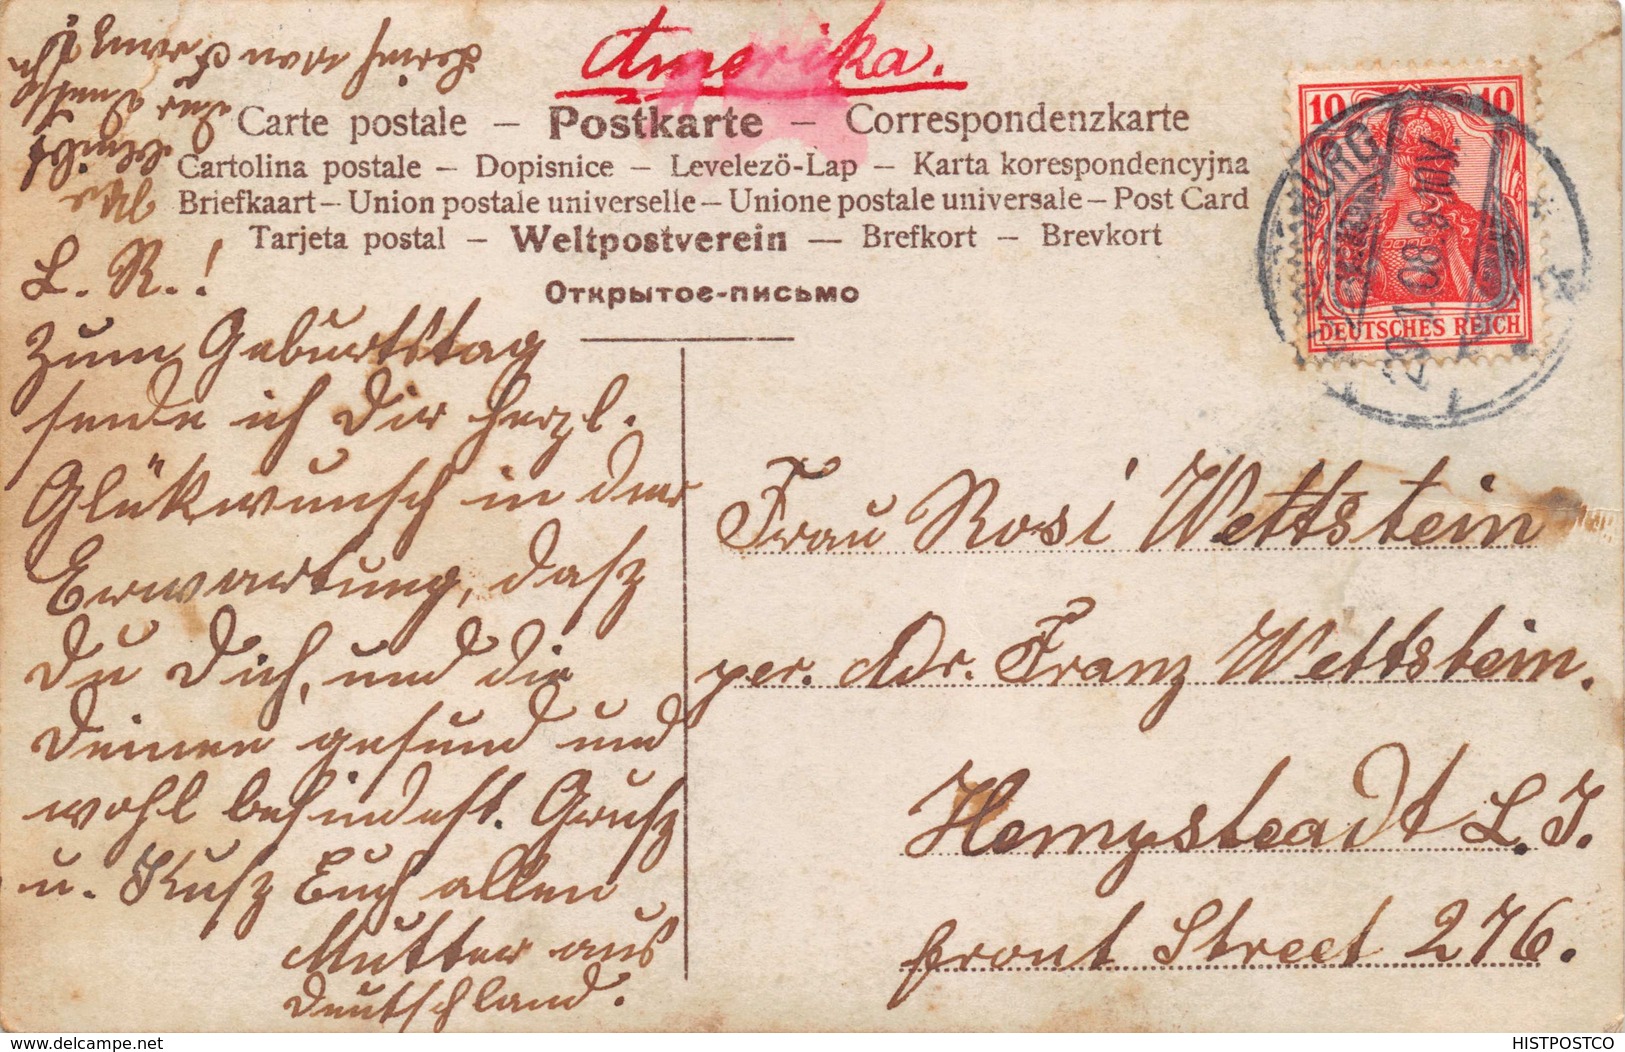 Amerika.
Carte postale – Postkarte – Correspondenzkarte
Cartolina postale – Dopisnice – Levelezö-Lap – Karta korespondencyjna
Briefkaart – Union postale universelle – Unione postale universale – Post Card
Tarjeta postal – Weltpostverein — Brefkort – Brevkort
Открытое-письмо
L. R.!
Zum Geburtstag
sende ich Dir herzl.
Glükwunsch in der
Erwartung, dasz
Du Dich, und die
Deinen gesund und
wohl befindest. Grusz
u. Kusz Euch allen
Mutter aus
Deutschland.
10 10
DEUTSCHES REICH
BURG
29.1.08.9-10V.
Frau Rosi Wettstein
per. Adr. Franz Wettstein.
Hempsteadt L.I.
front Street 276.
HISTPOSTCO
www.delcampe.net